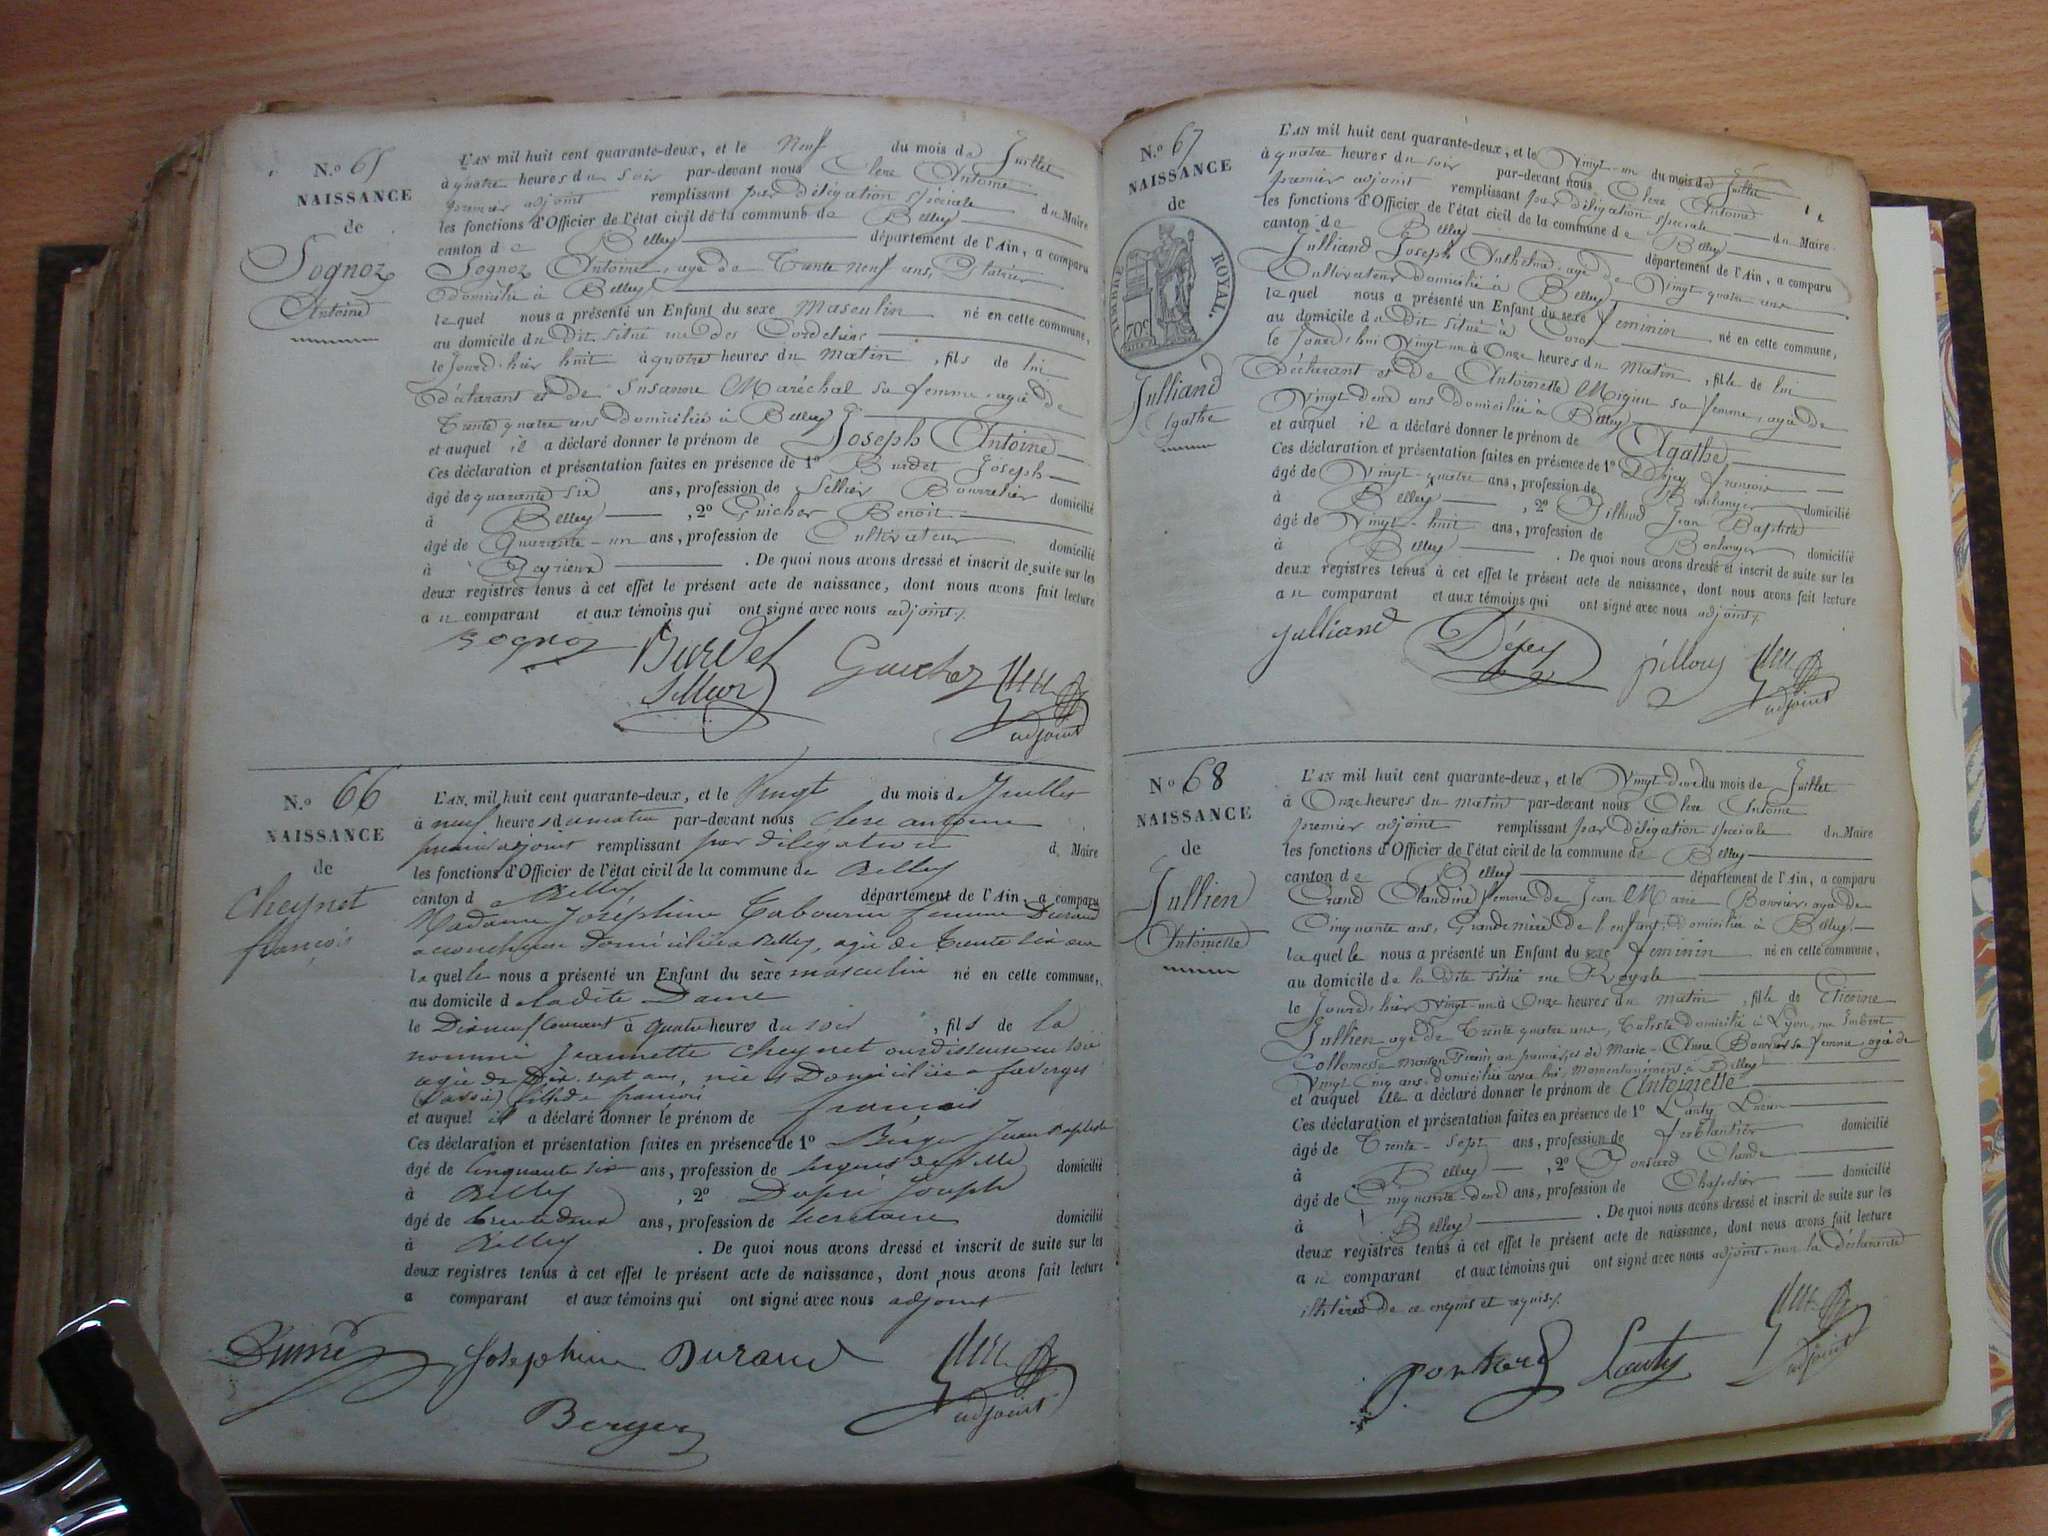 N.º 65
NAISSANCE
de
Sognoz
Antoine
L'AN mil huit cent quarante-deux, et le Neuf du mois de Juillet
à quatre heures du soir par-devant nous Clerc Antoine
premier adjoint remplissant par délégation spéciale du Maire
les fonctions d'Officier de l'état civil de la commune de Belley
canton de Belley département de l'Ain, a comparu
Sognoz Antoine, agé de Trente neuf ans, Platrier
domicilié à Belley
lequel nous a présenté un Enfant du sexe Masculin né en cette commune,
au domicile du Dit situé rue des Cordeliers
le Jourd'hier huit à quatre heures du Matin, fils de lui
Déclarant et de Susanne Maréchal sa femme, agée de
Trente quatre ans domiciliée à Belley
et auquel il a déclaré donner le prénom de Joseph Antoine
Ces déclaration et présentation faites en présence de 1º Burdet Joseph
âgé de quarante six ans, profession de Sellier Bourrelier domicilié
à Belley, 2º Guicher Benoit
âgé de Quarante-un ans, profession de Cultivateur domicilié
à Peyrieux. De quoi nous avons dressé et inscrit de suite sur les
deux registres tenus à cet effet le présent acte de naissance, dont nous avons fait lecture
au comparant et aux témoins qui ont signé avec nous adjoint
Sognoz Burdet Guicher
Sellier
adjoint
N.º 66
NAISSANCE
de
Cheynet
françois
L'AN mil huit cent quarante-deux, et le Vingt du mois de Juillet
à neuf heures du matin par-devant nous Clerc antoine
premier adjoint remplissant par délégation d Maire
les fonctions d'Officier de l'état civil de la commune de Belley
canton de Belley département de l'Ain, a comparu
Madame Joséphine femme Durand
accoucheuse domiciliée à Belley, agée de trente six ans
laquelle nous a présenté un Enfant du sexe masculin né en cette commune,
au domicile de ladite Dame
le Dixneuf courant à quatre heures du soir, fils de la
nommée Jeannette Cheynet ourdisseuse en soie
agée de Dix-sept ans, née et Domiciliée a faverges
fille de françois
et auquel il a déclaré donner le prénom de françois
Ces déclaration et présentation faites en présence de 1º Berger Jean Baptiste
âgé de cinquante six ans, profession de sergent de ville domicilié
à Belley, 2º Dupré Joseph
âgé de trente deux ans, profession de secrétaire domicilié
à Belley. De quoi nous avons dressé et inscrit de suite sur les
deux registres tenus à cet effet le présent acte de naissance, dont nous avons fait lecture
a comparant et aux témoins qui ont signé avec nous adjoint
Dupré Josephine Durand
Berger adjoint
N.º 67
NAISSANCE
de
TIMBRE ROYAL.
70c
Julliand
Agathe
L'AN mil huit cent quarante-deux, et le Vingt-un du mois de Juillet
à quatre heures du soir par-devant nous Clerc Antoine
premier adjoint remplissant par délégation spéciale du Maire
les fonctions d'Officier de l'état civil de la commune de Belley
canton de Belley département de l'Ain, a comparu
Julliand Joseph Anthelme, agé de Vingt-quatre ans
Cultivateur domicilié à Belley
lequel nous a présenté un Enfant du sexe féminin né en cette commune,
au domicile du Dit situé à Coron
le Jourd'hui Vingt un à Onze heures du Matin, fille de lui
Déclarant et de Antoinette Migieu sa femme, agée de
Vingt deux ans domiciliée à Belley
et auquel il a déclaré donner le prénom de Agathe
Ces déclaration et présentation faites en présence de 1º Déjey françois
âgé de Vingt-quatre ans, profession de Boulanger domicilié
à Belley, 2º Pilloud Jean Baptiste
âgé de Vingt-huit ans, profession de Boulanger domicilié
à Belley. De quoi nous avons dressé et inscrit de suite sur les
deux registres tenus à cet effet le présent acte de naissance, dont nous avons fait lecture
au comparant et aux témoins qui ont signé avec nous adjoint
julliand Déjey
adjoint
N.º 68
NAISSANCE
de
Jullien
Antoinette
L'AN mil huit cent quarante-deux, et le Vingt-deux du mois de Juillet
à Onze heures du matin par-devant nous Clerc Antoine
premier adjoint remplissant par délégation spéciale du Maire
les fonctions d'Officier de l'état civil de la commune de Belley
canton de Belley département de l'Ain, a comparu
Claudine femme de Jean Marie Bouvier, agée de
Cinquante ans, Grand-mère de l'enfant, domiciliée à Belley,
laquelle nous a présenté un Enfant du sexe féminin né en cette commune,
au domicile de la dite situé rue Royale
le Jourd'hier Vingt-un à Onze heures du matin, fille de Etienne
Jullien agé de Trente quatre ans, domicilié à Lyon, rue Imbert
Collomès, Maison au premier, et de Marie-Anne Bouvier sa femme, agée de
Vingt cinq ans, domiciliée avec lui, Momentanément à Belley
et auquel elle a déclaré donner le prénom de Antoinette
Ces déclaration et présentation faites en présence de 1º Lanty
âgé de Trente-Sept ans, profession de ferblantier domicilié
à Belley, 2º Ponsard Claude
âgé de Cinquante-deux ans, profession de Chapelier domicilié
à Belley. De quoi nous avons dressé et inscrit de suite sur les
deux registres tenus à cet effet le présent acte de naissance, dont nous avons fait lecture
au comparant et aux témoins qui ont signé avec nous adjoint, non la déclarante
illitérée de ce enquis et requis
Lanty
adjoint